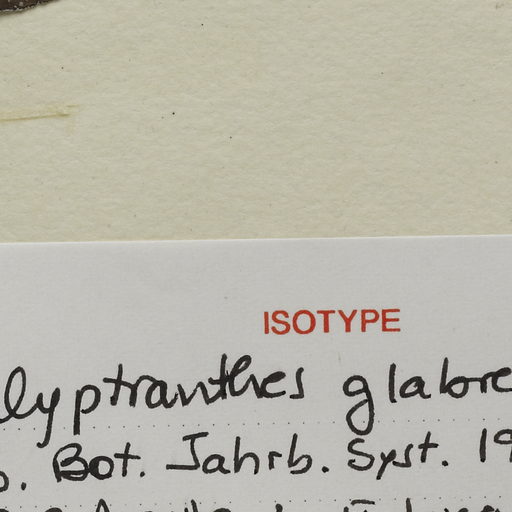 ISOTYPE
lyptranthes glabre
b. Bot. Jahrb. Syst. 19